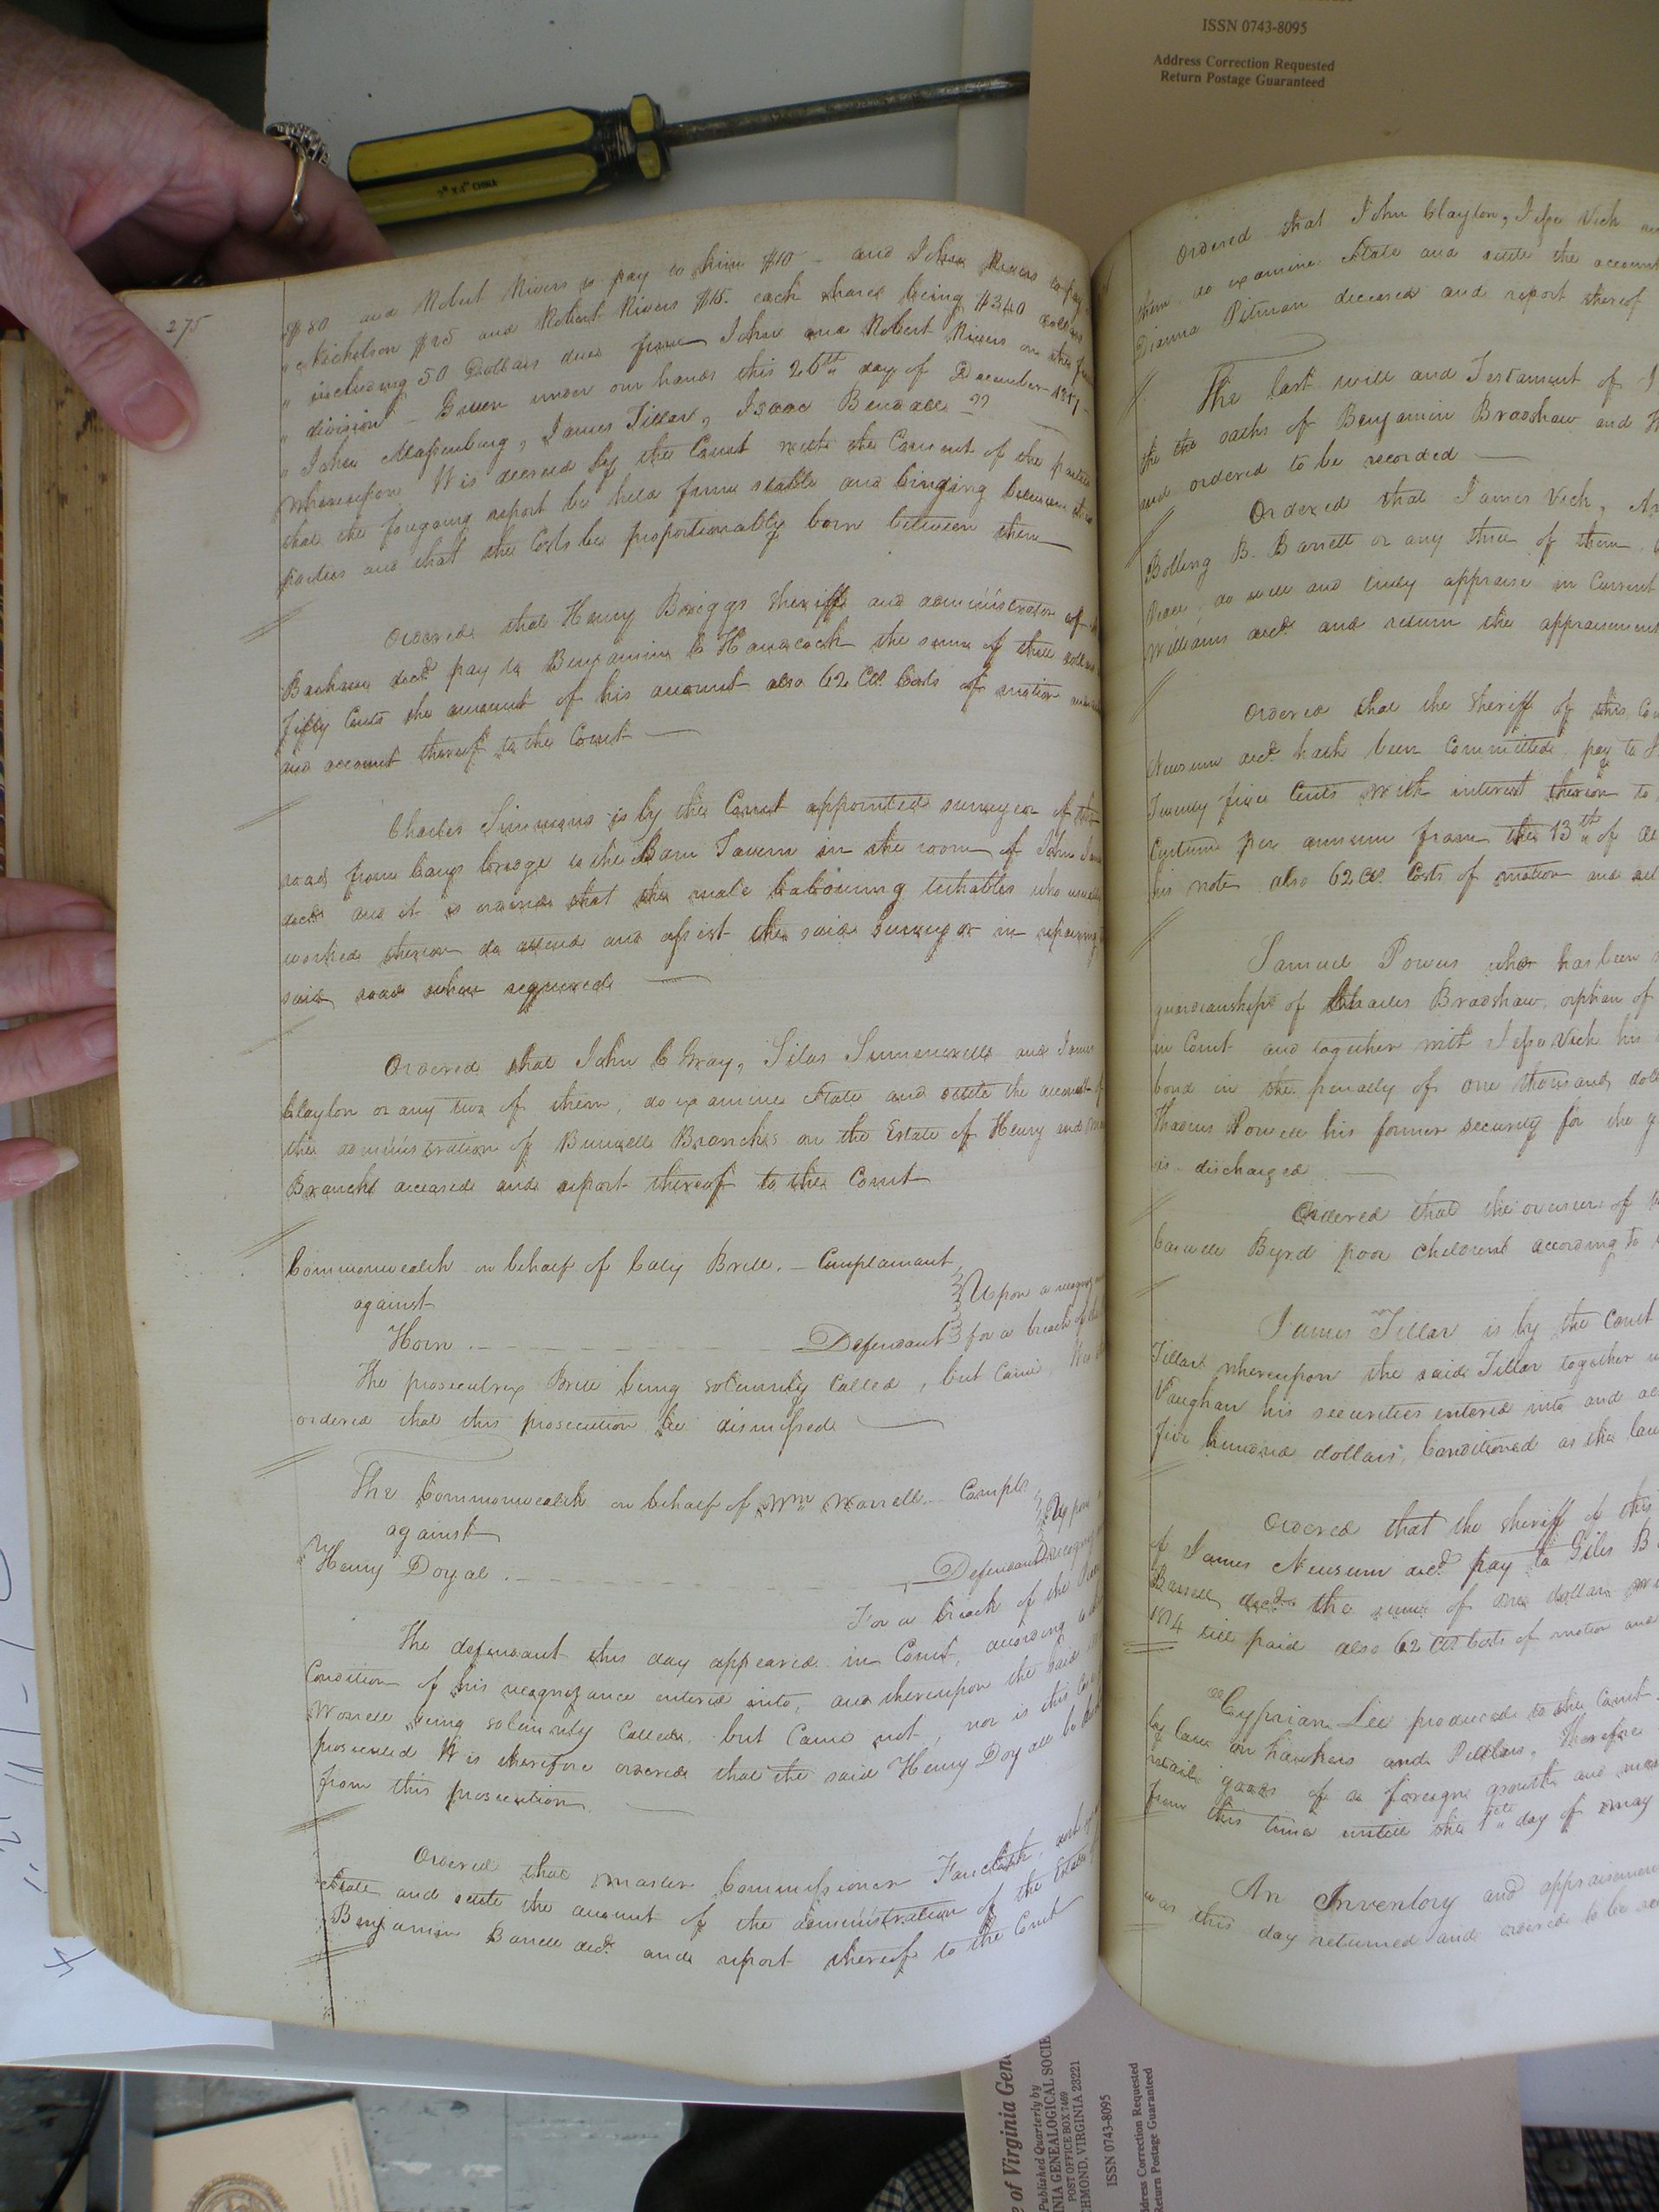 ISSN 0743-8095
Address Correction Requested
Return Postage Guaranteed
CHINA
275
"$80 and Robert Rivers to pay to him $10 – and John Rivers to pay
" Nicholson $25 and Robert Rivers $15. each share being $340 dollars
" including 50 Dollars due from John and Robert Rivers on the
" division – Given under our hands this 26th day of December 1817 –
" John Massenburg, James Tillar, Isaac Bendall "
Whereupon It is decreed by the Court with the Consent of the parties
that the foregoing report be held firm stable and binding between the
parties and that the Costs be proportionably born between them
Ordered that Henry Briggs sheriff and administrator of
Barham decd. pay to Benjamin C Hancock the sum of three dollars
fifty Cents the amount of his account also 62 Cts. Costs of motion
and account thereof to the Court
Charles Simmons is by the Court appointed surveyor of the
road from bridge to the Barn Tavern in the room of John
decd. and it is ordered that the male labouring tithables who
worked thereon do attend and assist the said surveyor in repairing
said road when required
Ordered that John C Gray, Silas Summerell and James
Clayton or any two of them, do examine State and settle the account of
the administration of Burwell Branch on the Estate of Henry and
Branch deceased and report thereof to the Court
Commonwealth on behalf of Caty Brill. – Complainant
against
Horn . – Defendant
Upon a
for a breach of the
The prosecutrix Brill being solemnly Called, but Came,
ordered that this prosecution be dismissed
The Commonwealth on behalf of Wm Worrell – Complt
against
Henry Doyal . – Defendant
Upon
For a breach of the
The defendant this day appeared in Court, according to
Condition of his recognizance entered into, and thereupon the said
Worrell being solemnly Called, but Came not, nor is this
prosecuted It is therefore ordered that the said Henry Doyall be
from this prosecution
Ordered that Master Commissioner
State and settle the account of the administration of the Estate of
Benjamin Barrell decd. and report thereof to the Court
Ordered that John Clayton, Jesse Vick
them, do examine State and settle the account
Dianna Pitman deceased and report thereof
The last will and Testament of
the the oaths of Benjamin Bradshaw and
and ordered to be recorded
Ordered that James Vick,
Bolling B. Barrett or any three of them,
do well and truly appraise in Current
Williams decd. and return the appraisement
Ordered that the Sheriff of this
Newsum decd. hath been Committed pay to
Twenty five Cents with interest thereon to
Centum per annum from the 13th of
his note also 62 Cts. Costs of motion and
Samuel Powers who has been
guardianship of Charles Bradshaw, orphan of
in Court and together with Jesse Vick his
bond in the penalty of one thousand
Powell his former security for the
is discharged
Ordered that the overseers of
Byrd poor Children according to
James Tillar is by the Court
Tillar whereupon the said Tillar together
Vaughan his securities entered into and
five hundred dollars, Conditioned as the law
Ordered that the sheriff of this
of James Newsum decd. pay to Giles B
Barrell decd. the sum of one dollar
1814 till paid also 62 Cts Costs of motion and
Cyprian Lee produced to the Court
by law on hawkers and Pedlars, Therefore
retail goods of a foreign growth and
from this time untill the 1st day of may
An Inventory and appraisement
was this day returned and ordered to be
e of Virginia Gen
Published Quarterly by
INIA GENEALOGICAL SOCIE
POST OFFICE BOX 7469
CHMOND, VIRGINIA 23221
ISSN 0743-8095
ddress Correction Requested
Return Postage Guaranteed